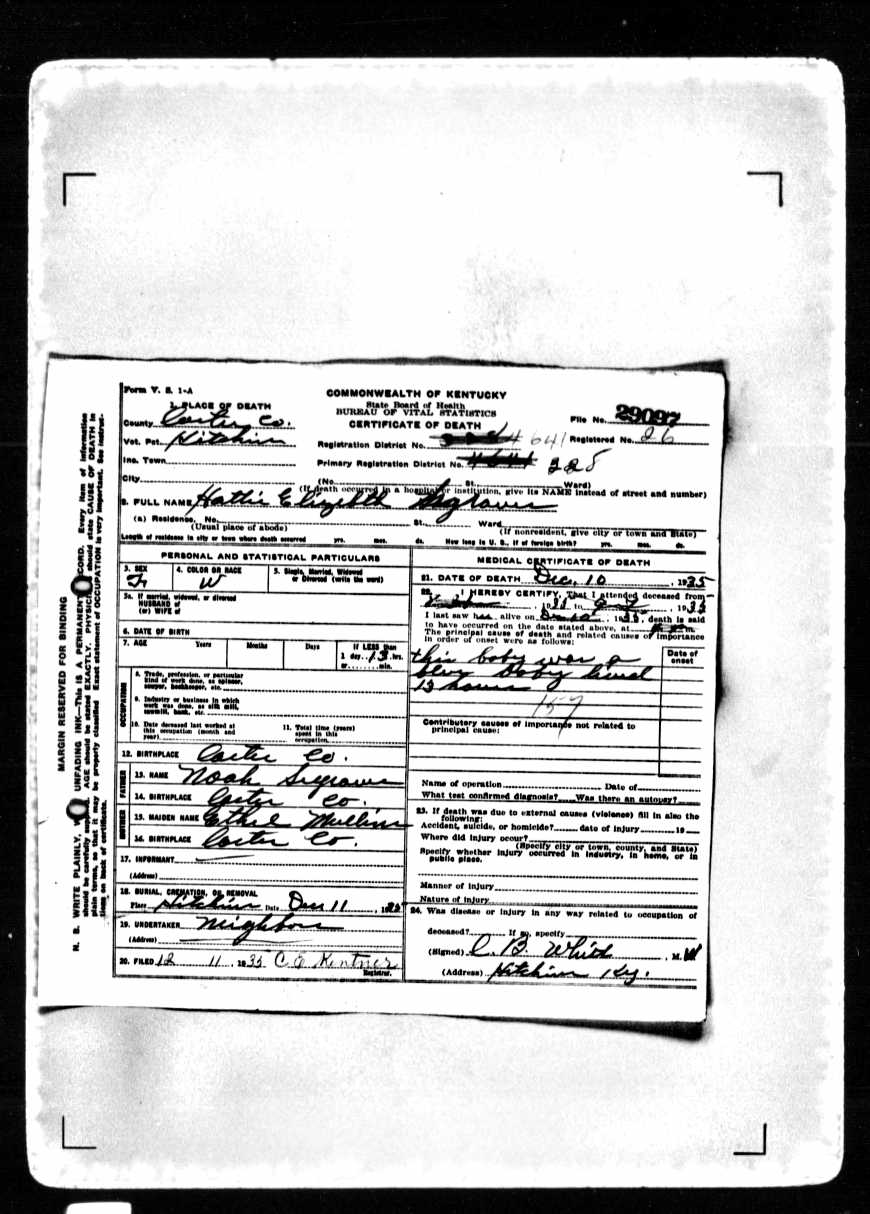 Form V. S. 1-A
COMMONWEALTH OF KENTUCKY
State Board of Health
BUREAU OF VITAL STATISTICS
CERTIFICATE OF DEATH
File No. 29097
1. PLACE OF DEATH
County Carter Co.
Vot. Pct. Hitchins
Inc. Town
City
Registration District No. 4641 Registered No. 26
Primary Registration District No. 225
(No. St. Ward)
(If death occurred in a hospital or institution, give its NAME instead of street and number)
2. FULL NAME Hattie Elizabeth
(a) Residence. No. St., Ward
(Usual place of abode) (If nonresident, give city or town and State)
Length of residence in city or town where death occurred yrs. mos. ds. How long in U. S., if of foreign birth? yrs. mos. ds.
PERSONAL AND STATISTICAL PARTICULARS
3. SEX F
4. COLOR OR RACE W
5. Single, Married, Widowed
or Divorced (write the word)
5a. If married, widowed, or divorced
HUSBAND of
(or) WIFE of
6. DATE OF BIRTH
7. AGE Years Months Days If LESS than
1 day 13 hrs.
or min.
OCCUPATION
8. Trade, profession, or particular
kind of work done, as spinner,
sawyer, bookkeeper, etc.
9. Industry or business in which
work was done, as silk mill,
sawmill, bank, etc.
10. Date deceased last worked at
this occupation (month and
year)
11. Total time (years)
spent in this
occupation
12. BIRTHPLACE Carter Co.
FATHER
13. NAME Noah
14. BIRTHPLACE Carter Co.
MOTHER
15. MAIDEN NAME Ethel Mullins
16. BIRTHPLACE Carter Co.
17. INFORMANT
(Address)
18. BURIAL, CREMATION, OR REMOVAL
Place Hitchins Date Dec 11, 1935
19. UNDERTAKER Neighbors
(Address)
20. FILED 12 11, 1935 C E Kentner
Registrar.
MEDICAL CERTIFICATE OF DEATH
21. DATE OF DEATH Dec, 10, 1935
22. I HEREBY CERTIFY, That I attended deceased from
, 1935 to , 1935
I last saw her alive on , 1935, death is said
to have occurred on the date stated above, at m.
The principal cause of death and related causes of importance
in order of onset were as follows:
Date of
onset
this baby was a
blue baby lived
13 hours
157
Contributory causes of importance not related to
principal cause:
Name of operation Date of
What test confirmed diagnosis? Was there an autopsy?
23. If death was due to external causes (violence) fill in also the
following:
Accident, suicide, or homicide? date of injury 19
Where did injury occur?
(Specify city or town, county, and State)
Specify whether injury occurred in industry, in home, or in
public place.
Manner of injury
Nature of injury
24. Was disease or injury in any way related to occupation of
deceased? If so, specify
(Signed) C. B. White, M.
(Address) Hitchins Ky.
MARGIN RESERVED FOR BINDING
N. B. WRITE PLAINLY, UNFADING INK—This IS A PERMANENT RECORD. Every item of information
should be carefully supplied. AGE should be stated EXACTLY. PHYSICIANS should state CAUSE OF DEATH in
plain terms, so that it may be properly classified. Exact statement of OCCUPATION is very important. See instruc-
tions on back of certificate.